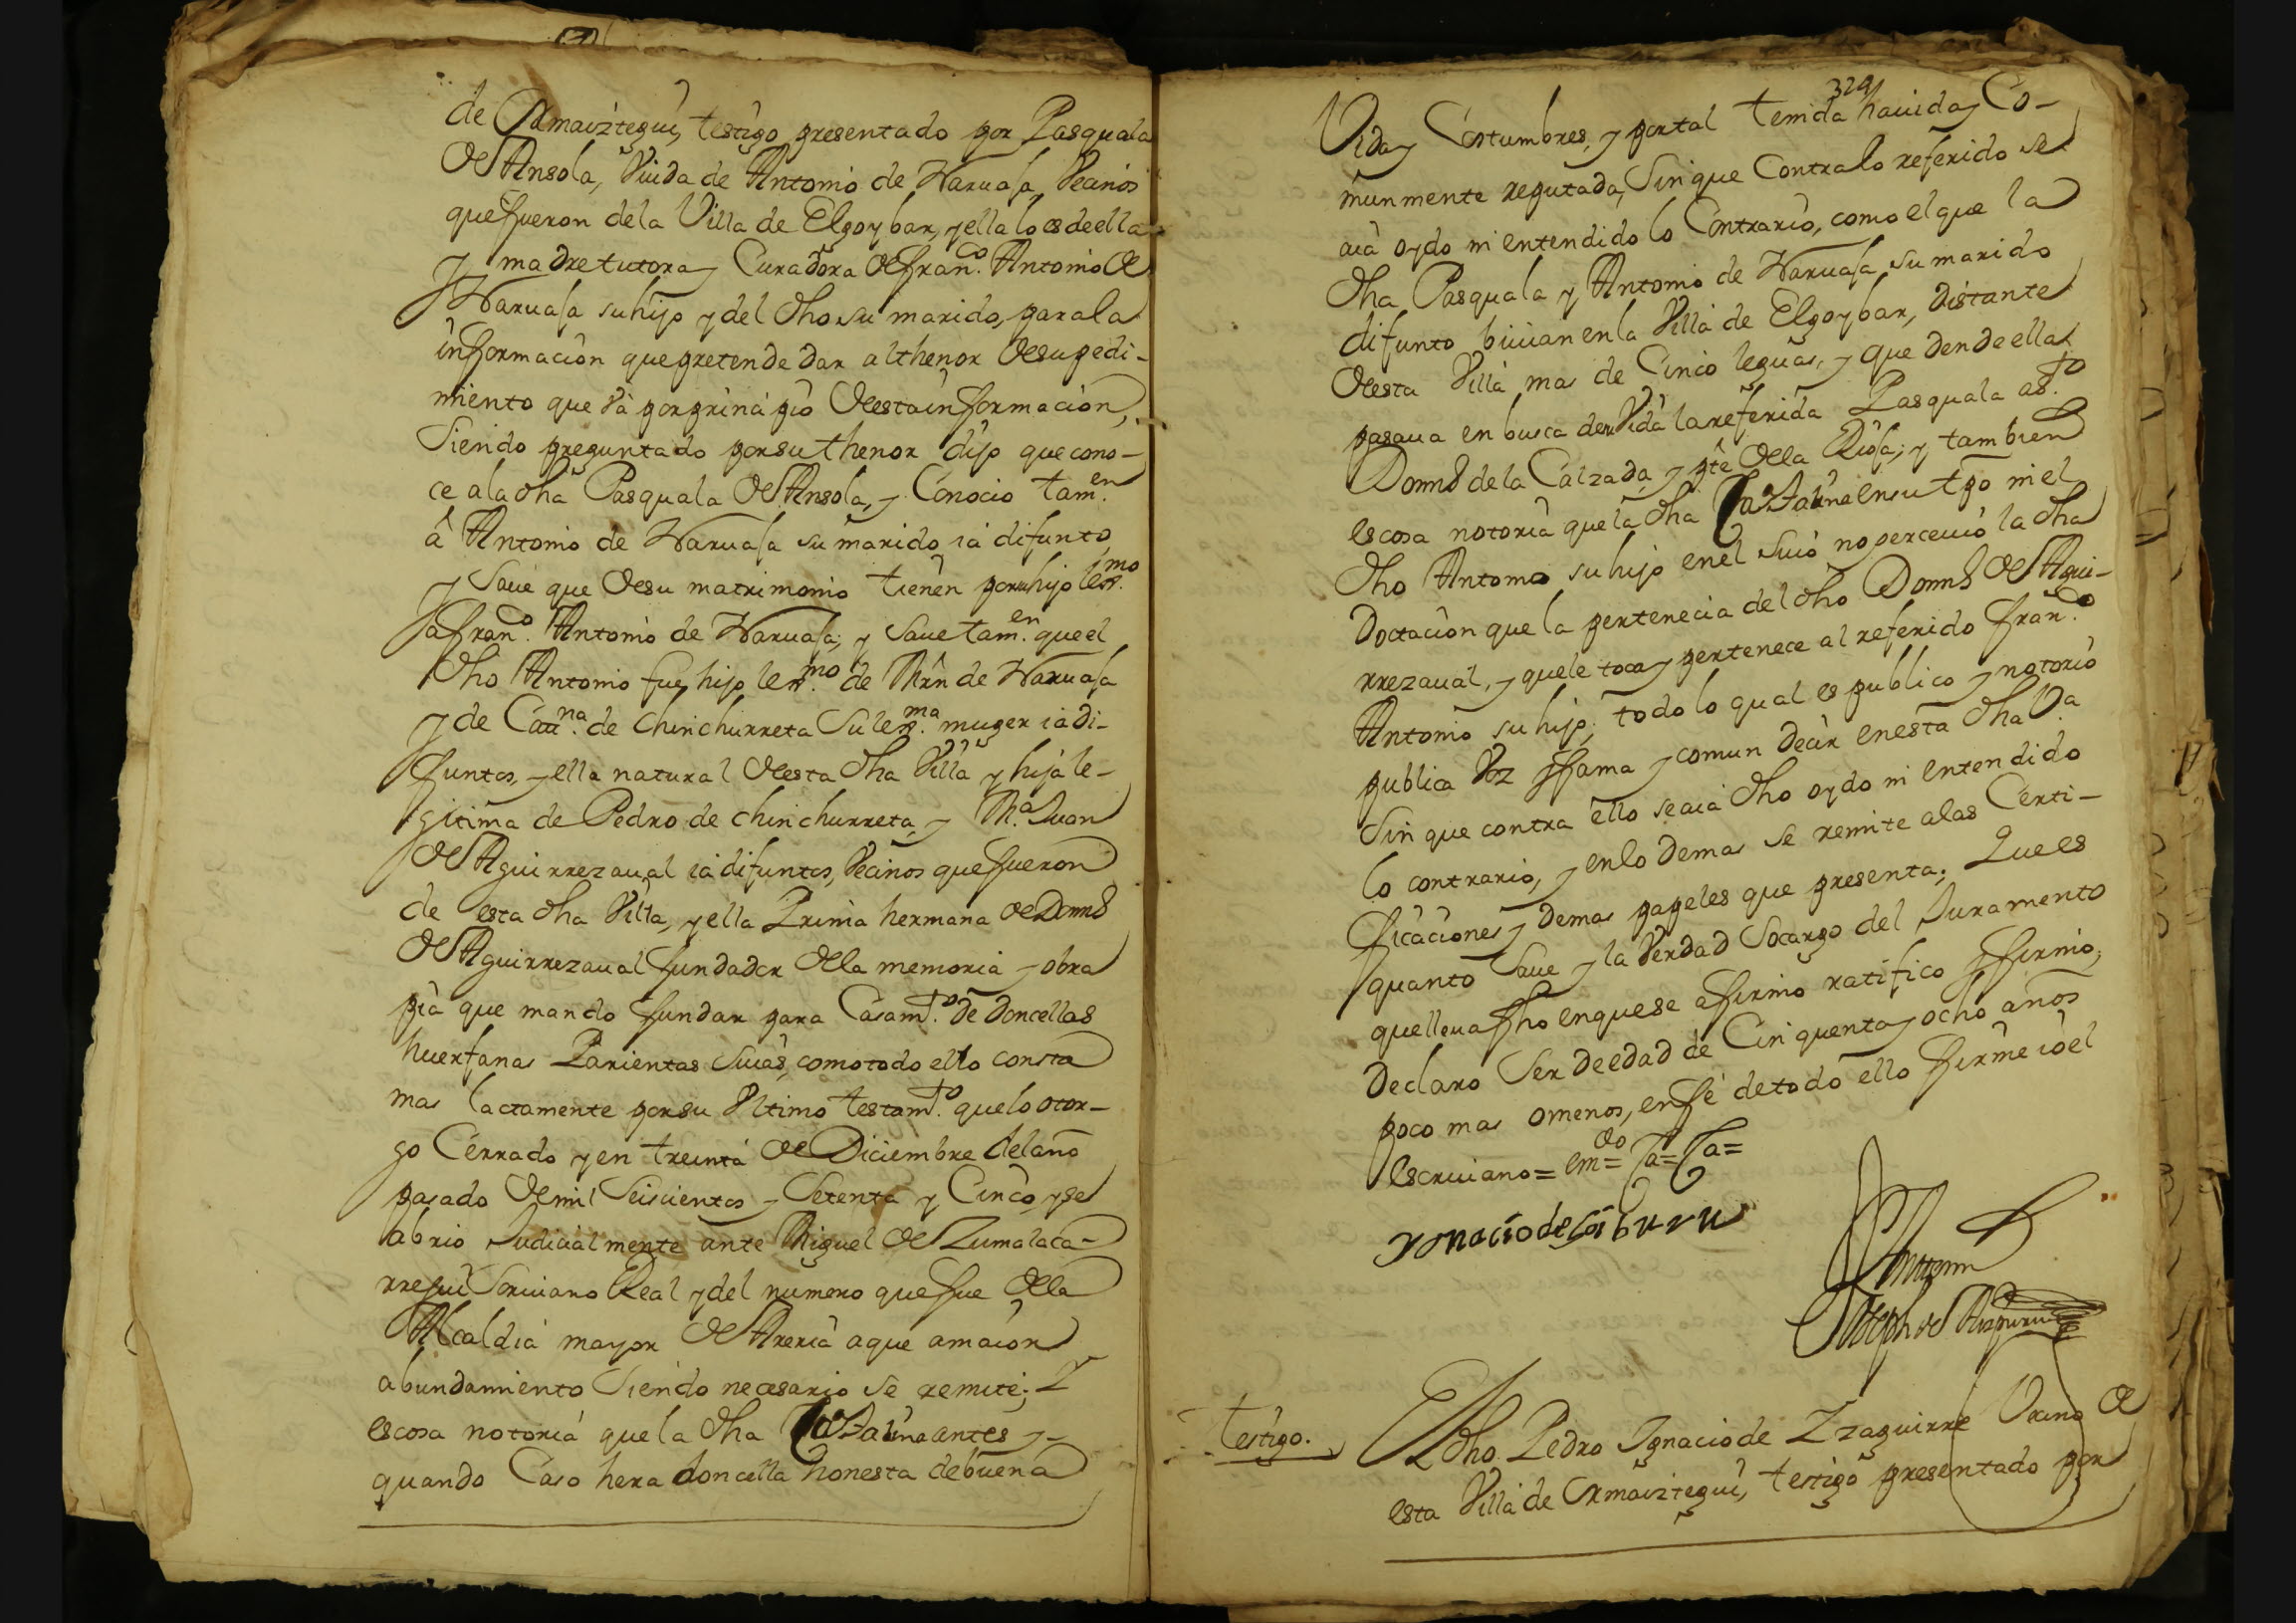 de Ormaiztegui, testigo presentado por Pasquala
de Ansola, Viuda de Antonio de Naruasa, Vecinos
que fueron dela Villa de Elgoybar, y ella lo es de ella
y madre tutora y Curadora de fran.co Antonio de
Naruasa su hijo y del dho su marido, para la
informacion que pretende dar al thenor de su pedi-
miento que va por principio desta informacion,
Siendo preguntado por su thenor dijo que cono-
ce ala dha Pasquala de Ansola, y Conocio tam.en
â Antonio de Naruasa su marido ia difunto,
y Saue que de su matrimonio tienen por su hijo lex.mo
a fran.co Antonio de Naruasa; y Saue tam.en que el
dho Antonio fue hijo lex.mo de Mrn de Naruasa
y de Catt.na de Chinchurreta Su lex.ma muger ia di-
funtos, y ella natural desta dha Villa y hija le-
gitima de Pedro de Chinchurreta, y M.a Juan
de Aguirrezaual ia difuntos, Vecinos que fueron
de esta dha Villa, y ella Prima hermana de Domns
de Aguirrezaual fundador dela memoria y obra
pia que mando fundar para Casam.to de doncellas
huerfanas Parientas Suias, como todo ello consta
mas lactamente por su Vltimo testam.to que lo otor-
go Cerrado y en treinta de Diciembre del año
pasado de mil Seiscientos y Setenta y Cinco, y se
abrio Judicialmente ante Miguel de Zumalaca-
rregui Scriuano Real y del numero que fue dela
Alcaldia mayor de Areria a que amaior
abundamiento Siendo necesario se remite; Y
es cosa notoria que la dha Cattalina antes y
quando Caso hera doncella honesta de buena
329
Vida y Costumbres, y por tal tenida hauida y Co-
munmente reputada, Sin que Contra lo referido se
aia oydo ni entendido lo Contrario, como el que la
dha Pasquala y Antonio de Naruasa su marido
difunto biuian en la Villa de Elgoybar, distante
desta Villa mas de Cinco leguas, y que dende ella
pasaua en busca de su Vida la referida Pasquala a s.to
Domns de la Calzada, y pte dela Rioja; y tambien
es cosa notoria que la dha Cattalina en su tpo ni el
dho Antonio su hijo en el Suio no perceuio la dha
Doctacion que la pertenecia del dho Domns de Agui-
rrezaual, y que le toca y pertenece al referido fran.co
Antonio su hijo; todo lo qual es publico y notorio
publica Voz y fama y comun decir en esta dha V.a
Sin que contra ello se aia dho oydo ni entendido
lo contrario, y en lo demas se remite a las Certi-
ficaciones y demas papeles que presenta; Que es
quanto Saue y la Verdad Socargo del Juramento
que lleua fho en que se afirmo ratifico y firmo,
Declaro Ser de edad de Cinquenta y ocho años
poco mas o menos, en fe de todo ello firme io el
escriuano = em.do = Ca = Ca =
Ygnacio de Laiburu
Ante mi
Joseph de Aizpuru
Testigo.
El dho Pedro Ignacio de Yzaguirre Vecino de
esta Villa de Ormaiztegui, testigo presentado por